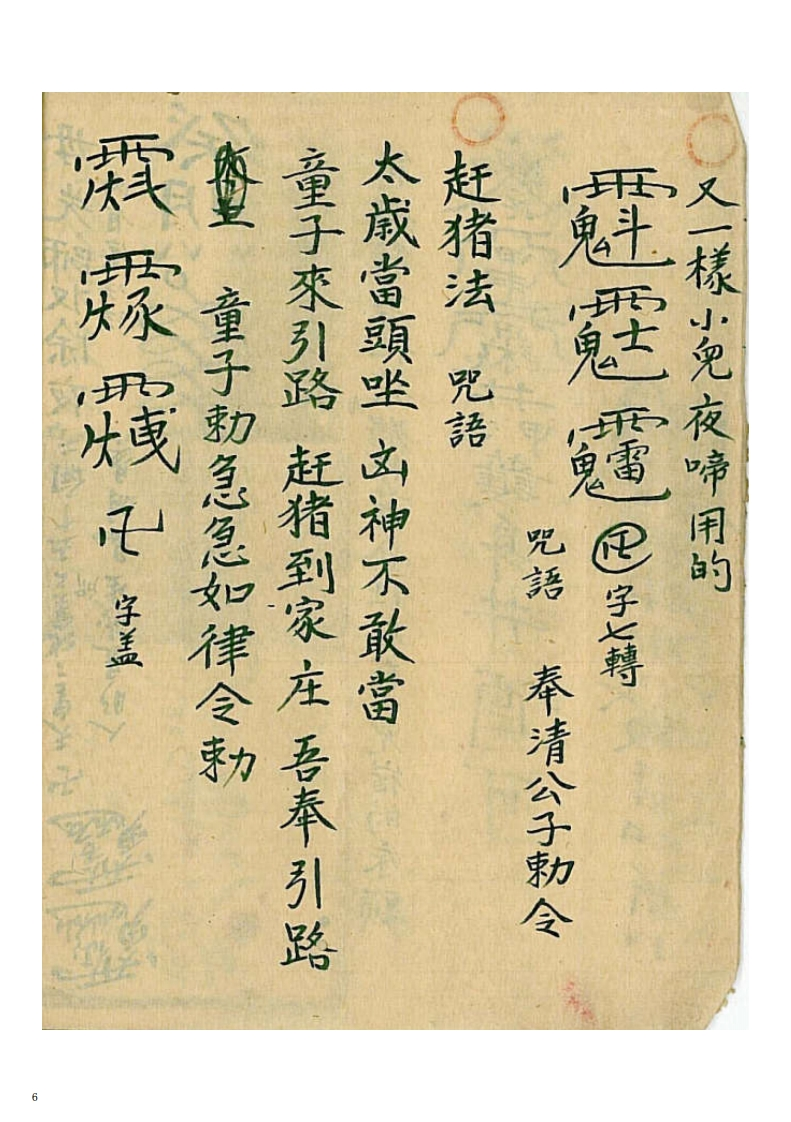 又一樣小兒夜啼用的
字七轉
咒語 奉清公子勅令
赶猪法 咒語
太歲當頭坐 凶神不敢當
童子來引路 赶猪到家庄 吾奉引路
童子勅急急如律令勅
字盖
6